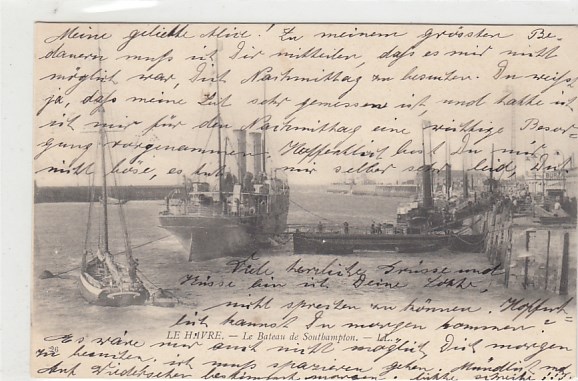 Meine geliebte Alice! Zu meinem grössten Be-
dauern muß ich Dir mitteilen, daß es mir nicht
möglich war, Dich Nachmittag zu besuchen. Du weißt
ja, daß meine Zeit sehr gemessen ist und hatte ich
mir für den Nachmittag eine wichtige Besor-
gung vorgenommen. Hoffentlich bist Du mir
nicht böse, es thut mir sehr leid, Dich
Viele herzliche Grüsse und
Küsse bin ich Deine
nicht sprechen zu können. Hoffent-
lich kannst Du morgen kommen?
LE HAVRE. — Le Bateau de Southampton. — LL.
Es wäre mir auch nicht möglich Dich morgen
zu besuchen, ich muß spazieren gehen.
Auf Wiedersehen bestimmt morgen, bitte schreibe!!!